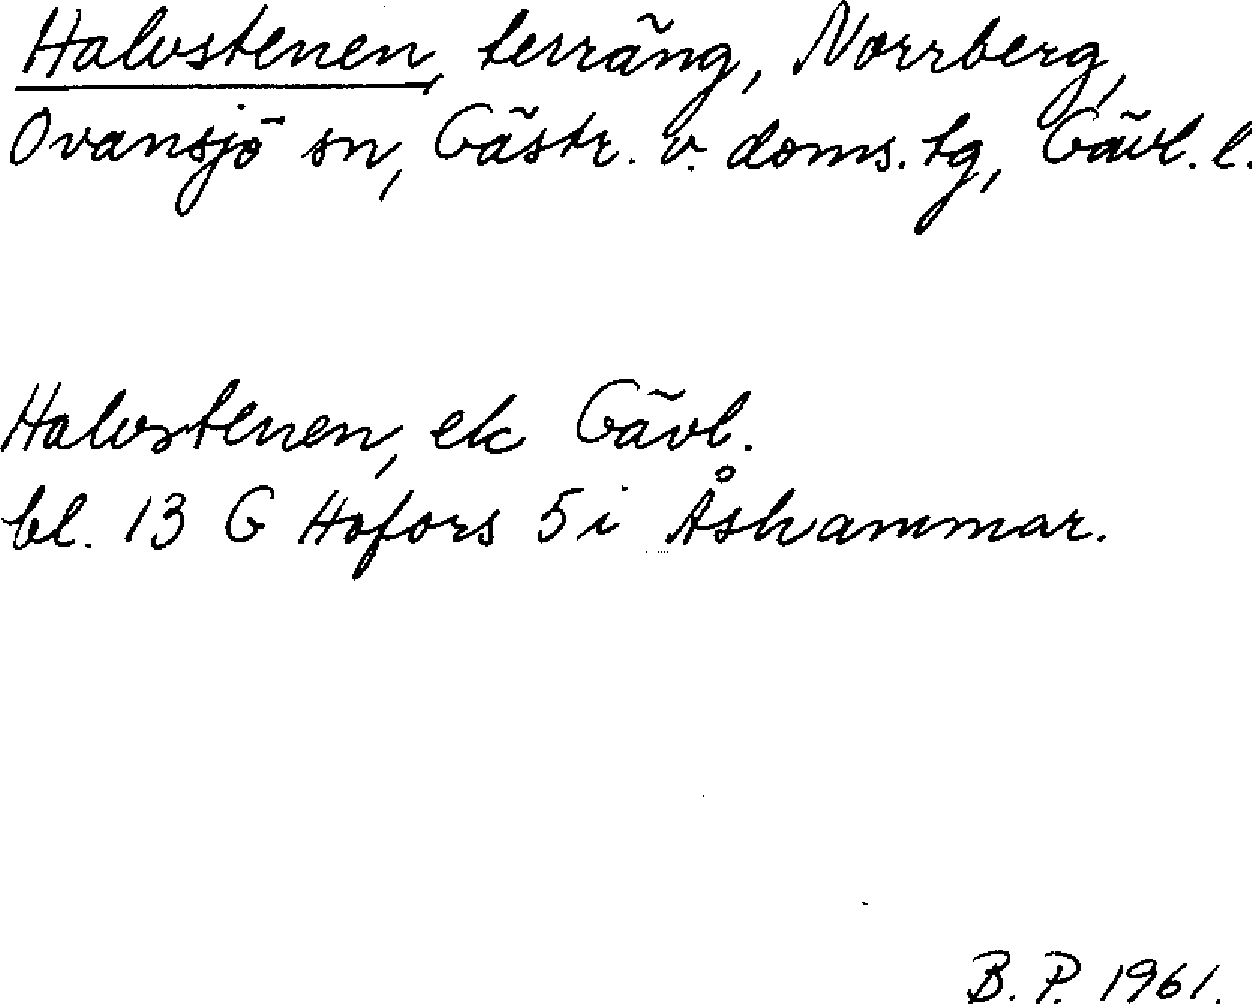 Halvstenen, terräng, Norrberg,
Ovansjö sn, Gästr. v. doms. tg, Gävl. l.
Halvstenen, ek Gävl.
bl. 13 G Hofors 5 i Åshammar.
B. P. 1961.